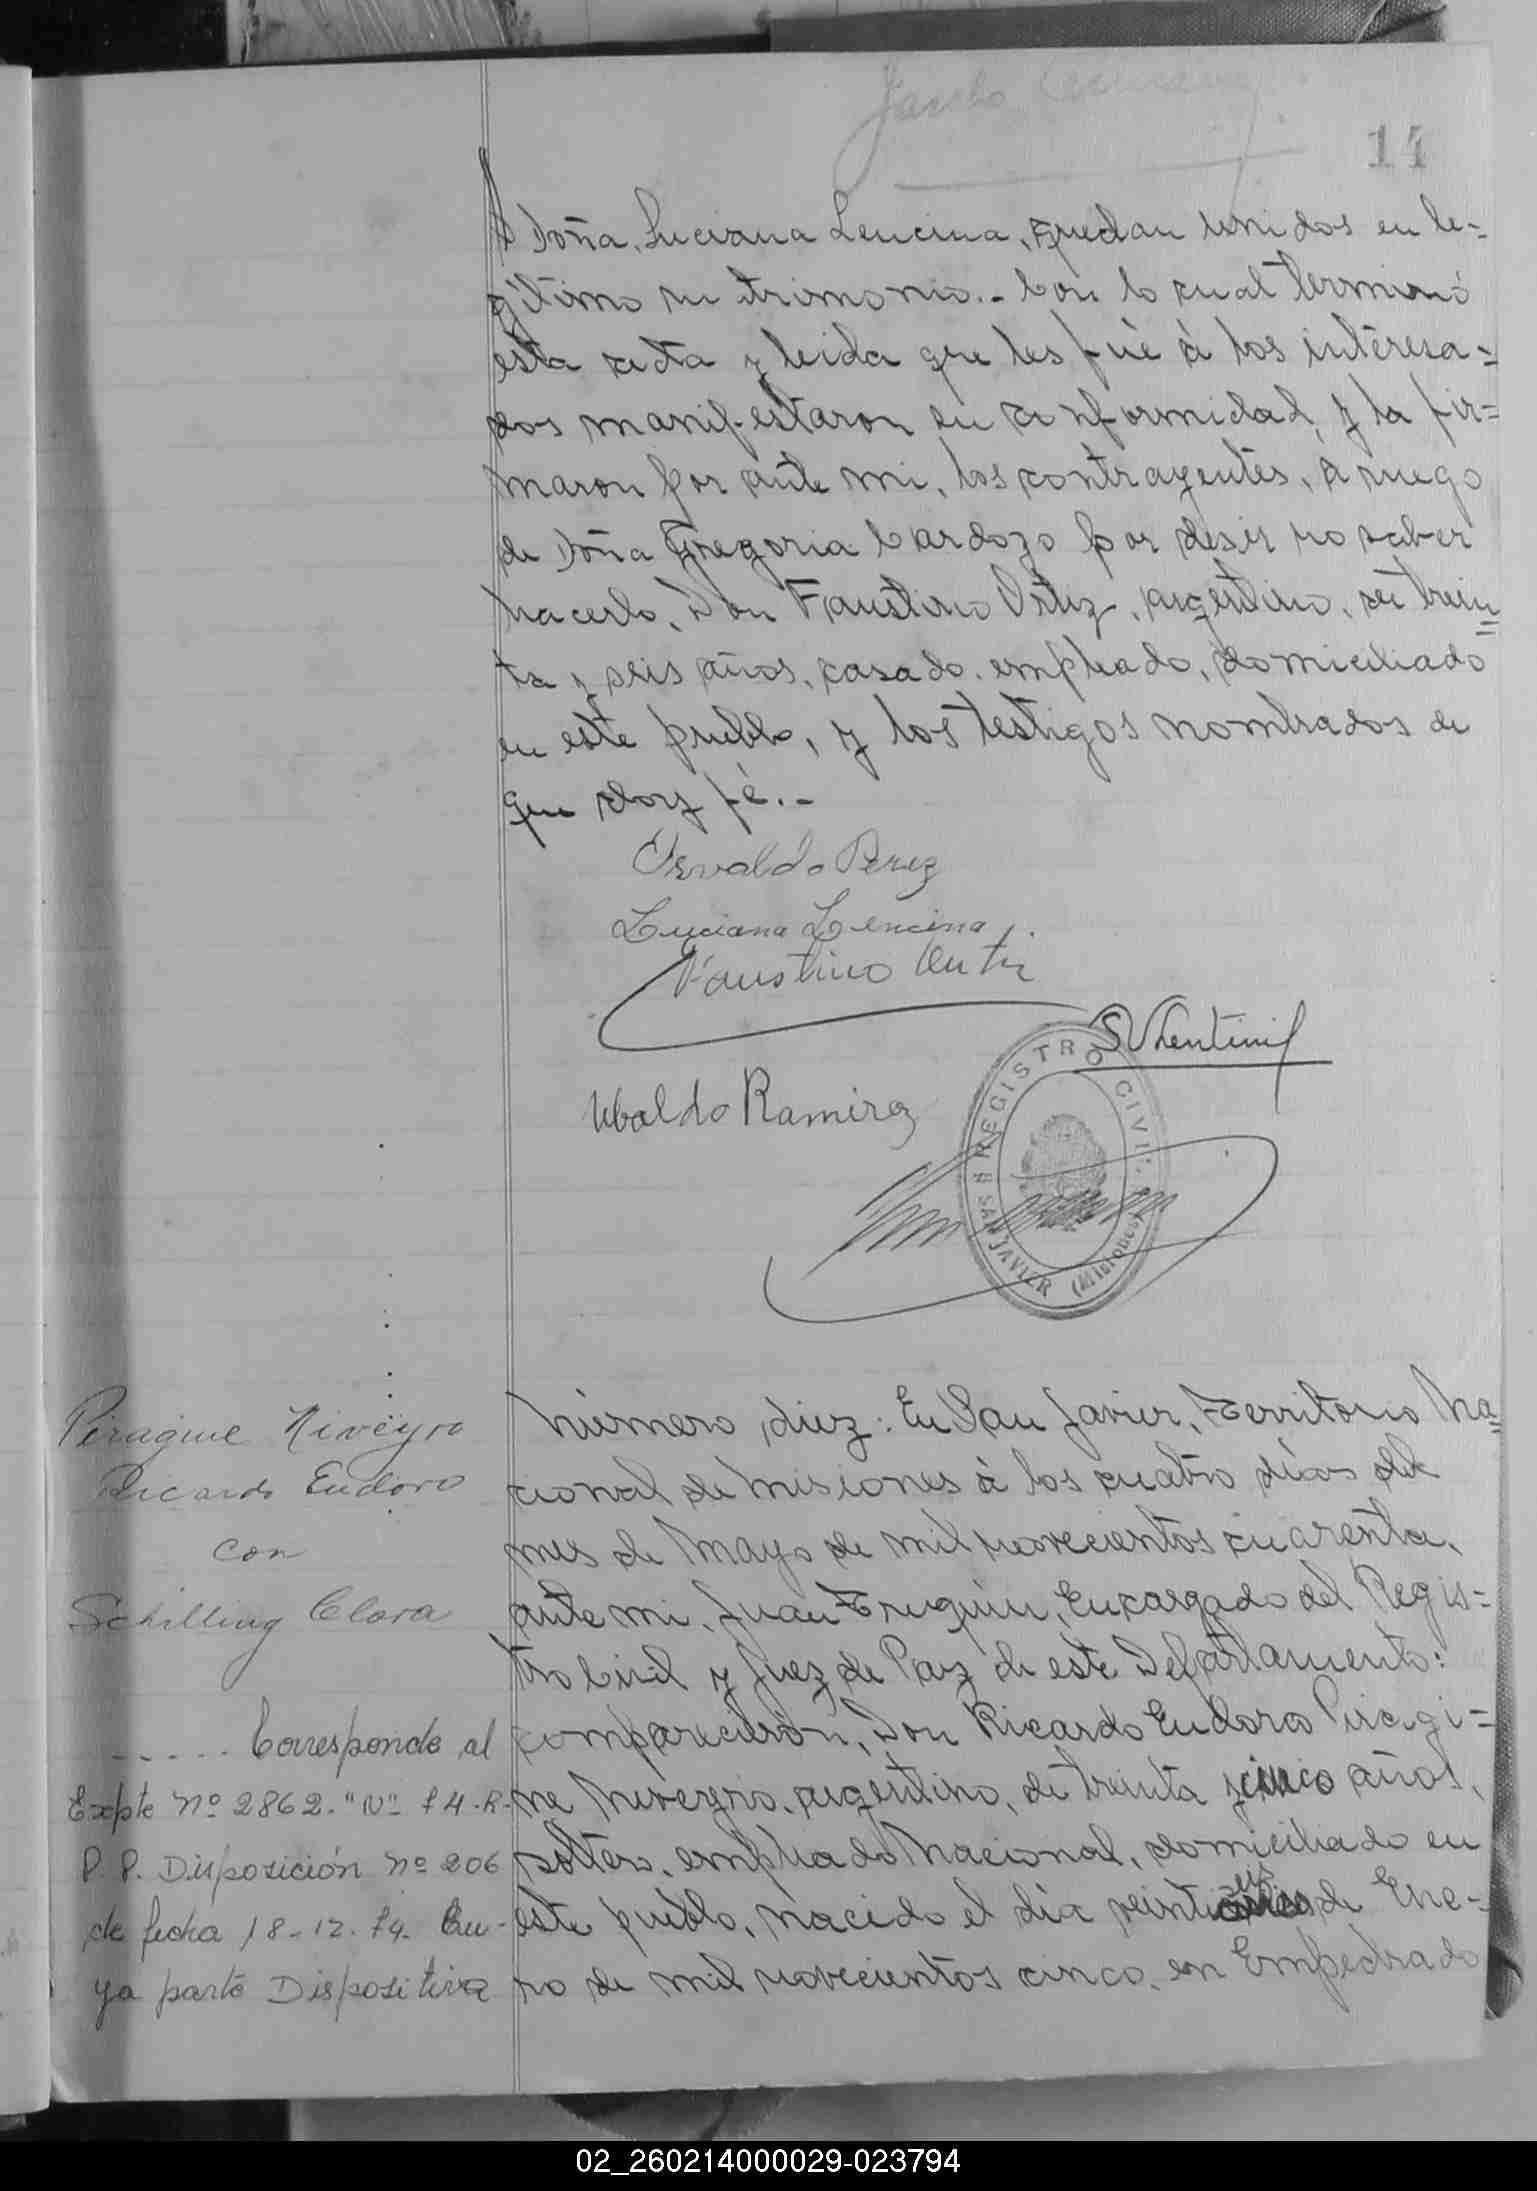 14
Doña, Luciana Lencina, quedan unidos en le=
gítimo matrimonio.- Con lo cual terminó
esta acta y leida que les fué á los interesa=
dos manifestaron su conformidad, y la fir=
maron por ante mi, los contrayentes, a ruego
de Doña Gregoria Cardozo por desir no saber
hacerlo, Don Faustino Ortiz, argentino, de trein=
ta y seis años, casado, empleado, domiciliado
en este pueblo, y los testigos nombrados de
que doy fé.-
Osvaldo Perez
Luciana Lencina
Faustino
Ubaldo Ramirez
REGISTRO CIVIL
SAN JAVIER (Misiones)
Piragine Niveyro
Ricardo Eudoro
con
Schilling Clara
..... Corresponde al
Expte Nº 2862. "N" 74.R.
P. P. Disposición Nº 206
de fecha 18-12-74. Cu-
ya parte Dispositiva
Número diez: En San Javier, Territorio Na=
cional de Misiones á los cuatro días del
mes de Mayo de mil novecientos cuarenta,
ante mi, Juan Encargado del Regis=
tro Civil y Juez de Paz de este Departamento:
comparecieron, Don Ricardo Eudoro Piragi=
ne Niveyro, argentino, de treinta y cinco años,
soltero, empleado Nacional, domiciliado en
este pueblo, nacido el día de Ene=
ro de mil novecientos cinco, en Empedrado
02_260214000029-023794